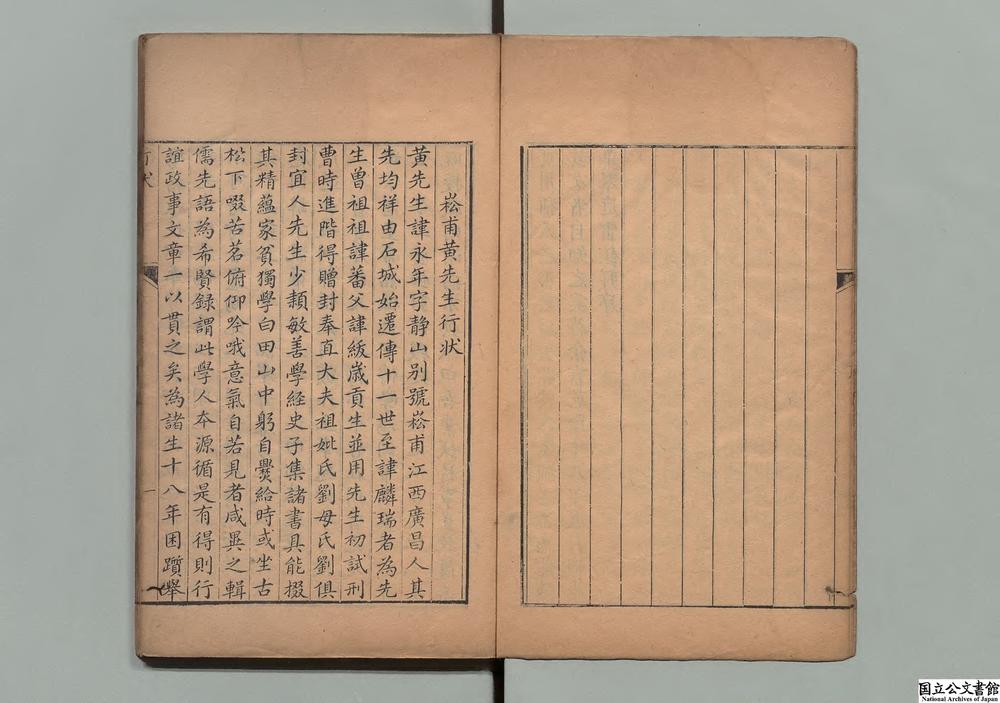 崧甫黃先生行狀
黃先生諱永年字静山别號崧甫江西廣昌人其
先均祥由石城始遷傳十一世至諱麟瑞者為先
生曾祖祖諱蕃父諱緩嵗貢生並用先生初試刑
曹時進階得贈封奉直大夫祖妣氏劉母氏劉俱
封宜人先生少頴敏善學經史子集諸書具能掇
其精蘊家貧獨學白田山中躬自爨給時或坐古
松下啜苦茗俯仰吟哦意氣自若見者咸異之輯
儒先語為希賢録謂此學人夲源循是有得則行
誼政事文章一以貫之矣為諸生十八年困躓舉
行狀
一
国立公文書館
National Archives of Japan